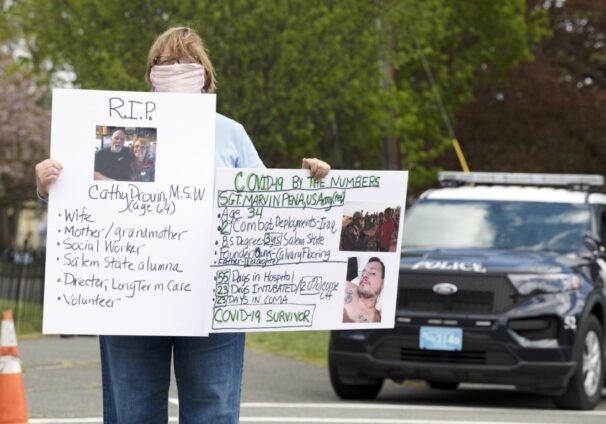 R.I.P.
Cathy Drouin, M.S.W
(age 64)
• Wife
• Mother/grandmother
• Social Worker
• Salem State alumna
• Director, Long Term Care
• Volunteer
COVID-19 BY THE NUMBERS
SGT. MARVIN PENA, US Army (ret)
• Age 34
• 2 Combat Deployments - Iraq
• B.S Degree Salem State
• Founder/Owner - Calvary Flooring
55 Days in Hospital
23 Days INTUBATED/20% chance
23 DAYS IN COMA
COVID-19 SURVIVOR
POLICE
53